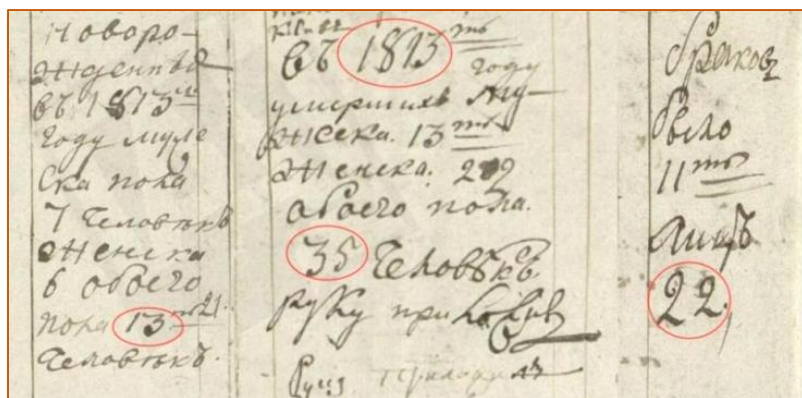 Новоро-
жденныхъ
въ 1813мъ
году муже
ска пола
7 человѣкъ
женска
6 обоего
пола 13ть
человѣкъ.
въ 1813мъ
году
умершихъ му-
жеска. 13ть
женска. 22
обоего пола.
35 человѣкъ
руку при
браковъ
было
11ть
лицъ
22.